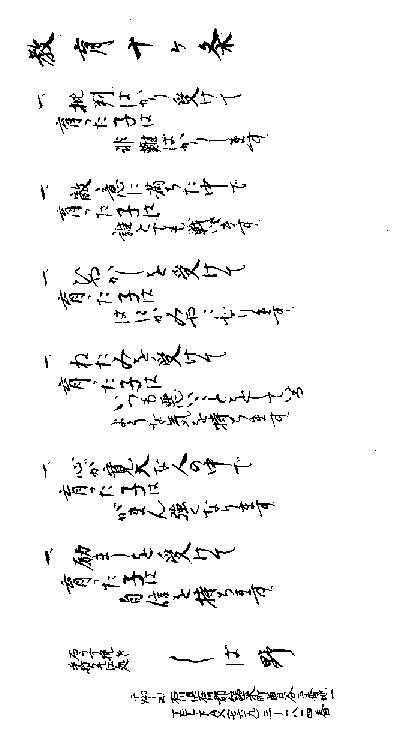 教育十ヶ条
一、批判ばかり受けて
育った子は
非難ばかりします
一、敵意に満ちた中で
育った子は
誰とでも戦います
一、ひやかしを受けて
育った子は
はにかみやになります
一、ねたみを受けて
育った子は
いつも悪いことをしている
ような気持ちになります
一、心が寛大な人の中で
育った子は
がまん強くなります
一、励ましを受けて
育った子は
自信を持ちます
しば野